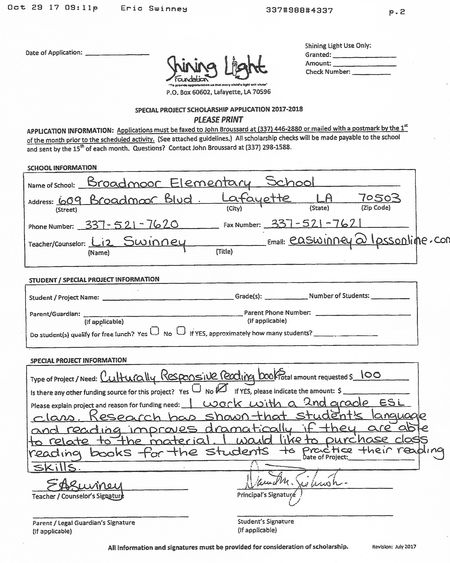 Oct 29 17 09:11p Eric Swinney 337#988#4337 p.2
Date of Application:
Shining Light
Foundation
"To provide opportunities so that every child's light will shine"
P.O. Box 60602, Lafayette, LA 70596
Shining Light Use Only:
Granted:
Amount:
Check Number:
SPECIAL PROJECT SCHOLARSHIP APPLICATION 2017-2018
PLEASE PRINT
APPLICATION INFORMATION: Applications must be faxed to John Broussard at (337) 446-2880 or mailed with a postmark by the 1st
of the month prior to the scheduled activity. (See attached guidelines.) All scholarship checks will be made payable to the school
and sent by the 15th of each month. Questions? Contact John Broussard at (337) 298-1588.
SCHOOL INFORMATION
Name of School: Broadmoor Elementary School
Address: 609 Broadmoor Blvd. Lafayette LA 70503
(Street) (City) (State) (Zip Code)
Phone Number: 337-521-7620 Fax Number: 337-521-7621
Teacher/Counselor: Liz Swinney Email: easwinney@lpssonline.com
(Name) (Title)
STUDENT / SPECIAL PROJECT INFORMATION
Student / Project Name: Grade(s): Number of Students:
Parent/Guardian: Parent Phone Number:
(if applicable) (if applicable)
Do student(s) qualify for free lunch? Yes No If YES, approximately how many students?
SPECIAL PROJECT INFORMATION
Type of Project / Need: Culturally Responsive reading books Total amount requested $ 100
Is there any other funding source for this project? Yes No If YES, please indicate the amount: $
Please explain project and reason for funding need: I work with a 2nd grade ESL
class. Research has shown that student's language
and reading improves dramatically if they are able
to relate to the material. I would like to purchase class
reading books for the students to practice their reading
skills. Date of Project:
EASwinney
Teacher / Counselor's Signature Principal's Signature
Parent / Legal Guardian's Signature Student's Signature
(if applicable) (if applicable)
All information and signatures must be provided for consideration of scholarship. Revision: July 2017